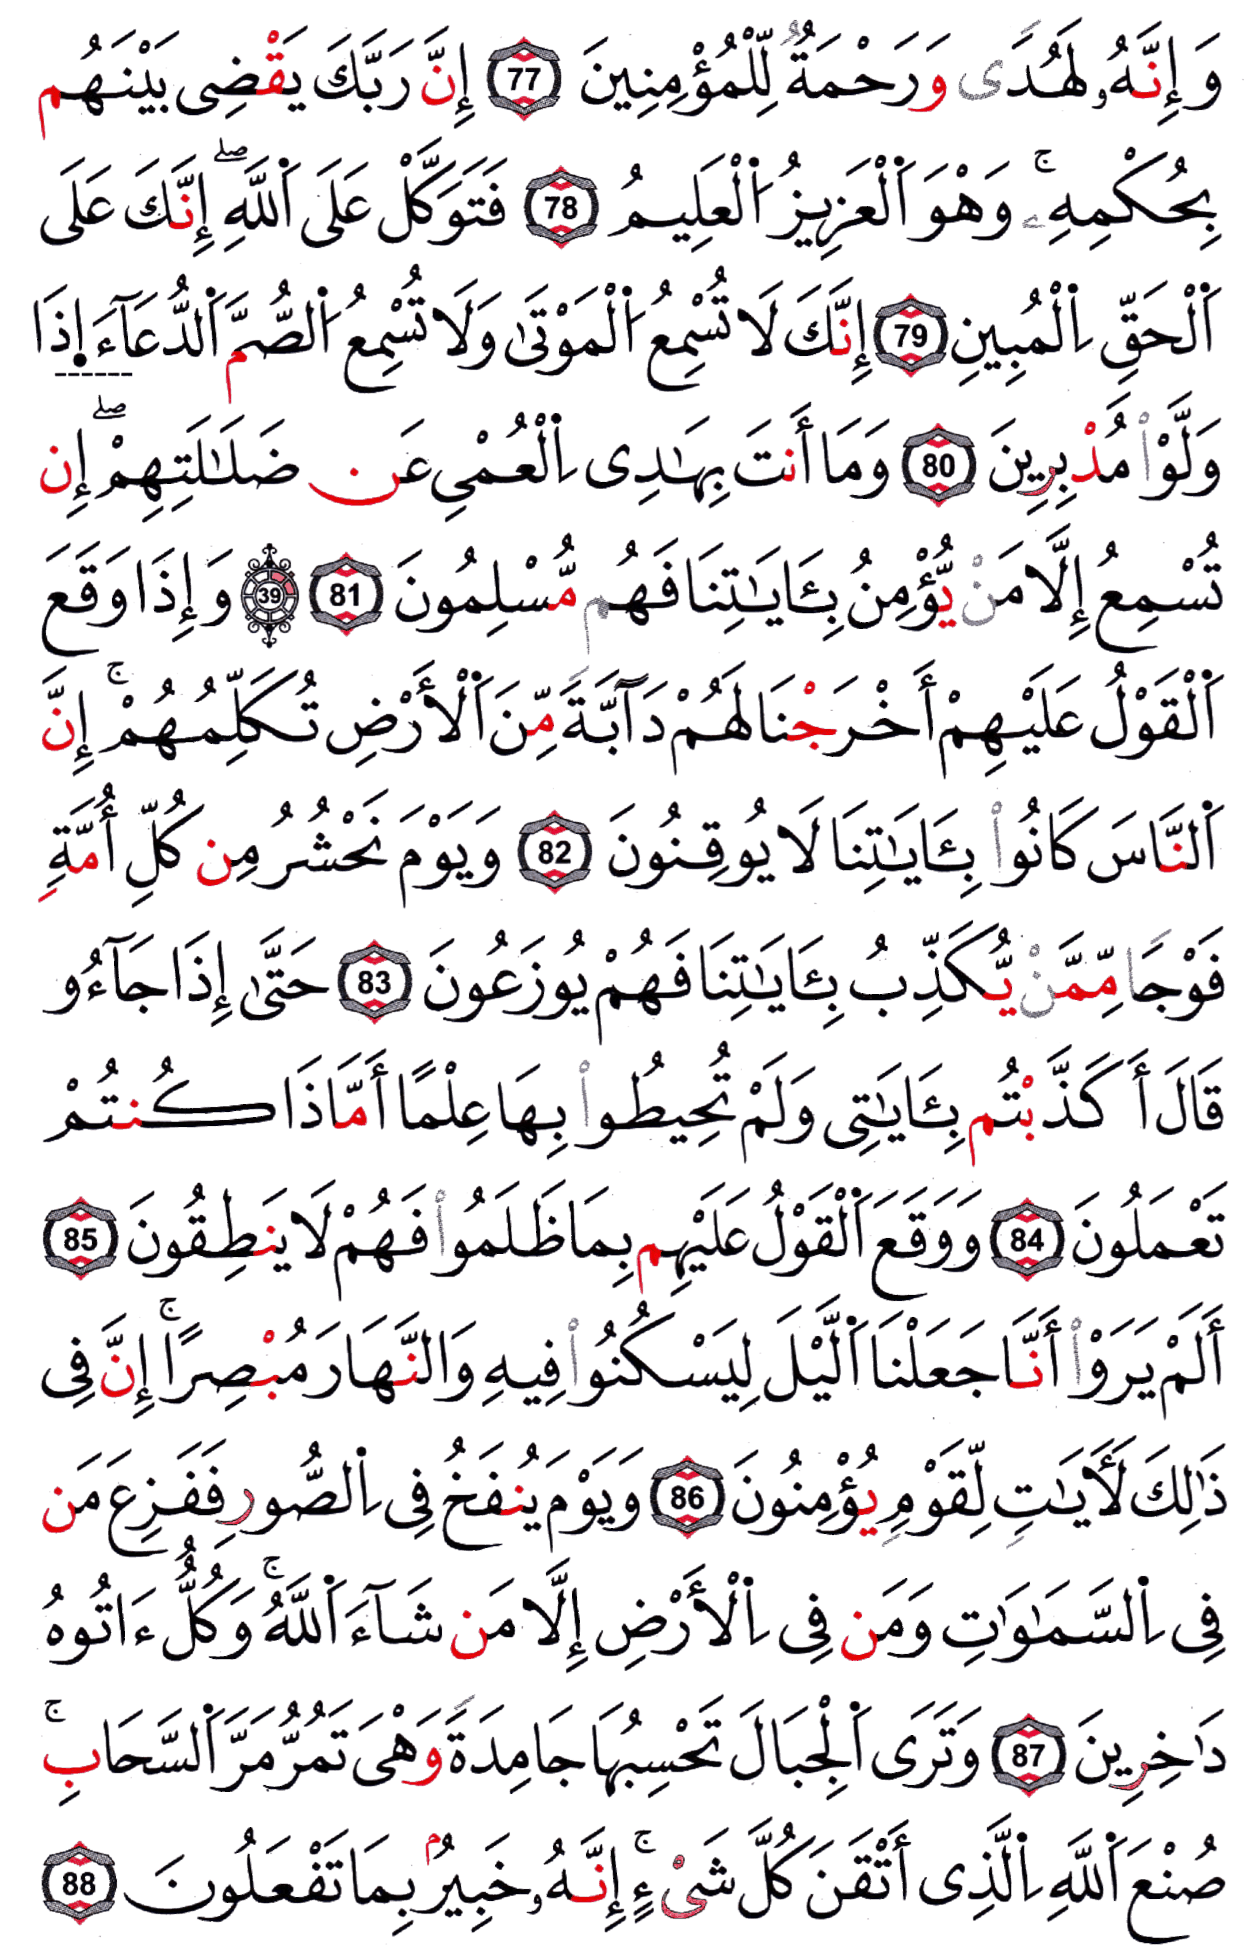 وَإِنَّهُۥ لَهُدًى وَرَحْمَةٌ لِّلْمُؤْمِنِينَ 77 إِنَّ رَبَّكَ يَقْضِى بَيْنَهُم
بِحُكْمِهِۦ ۚ وَهْوَ اَ۬لْعَزِيزُ اَ۬لْعَلِيمُ 78 فَتَوَكَّلْ عَلَى اَ۬للَّهِ ۖ إِنَّكَ عَلَى
اَ۬لْحَقِّ اِ۬لْمُبِينِ 79 إِنَّكَ لَا تُسْمِعُ اُ۬لْمَوْتَىٰ وَلَا تُسْمِعُ اُ۬لصُّمَّ اَ۬لدُّعَآءَ اِ۪ذَا
وَلَّوْاْ مُدْبِرِينَ 80 وَمَا أَنتَ بِهَٰدِى اِ۬لْعُمْىِ عَن ضَلَٰلَتِهِمْ ۖ إِن
تُسْمِعُ إِلَّا مَنْ يُّؤْمِنُ بِـَٔايَٰتِنَا فَهُم مُّسْلِمُونَ 81 39 وَإِذَا وَقَعَ
اَ۬لْقَوْلُ عَلَيْهِمْ أَخْرَجْنَا لَهُمْ دَآبَّةً مِّنَ اَ۬لْأَرْضِ تُكَلِّمُهُمْ ۚ إِنَّ
اَ۬لنَّاسَ كَانُواْ بِـَٔايَٰتِنَا لَا يُوقِنُونَ 82 وَيَوْمَ نَحْشُرُ مِن كُلِّ أُمَّةٍ
فَوْجًا مِّمَّنْ يُّكَذِّبُ بِـَٔايَٰتِنَا فَهُمْ يُوزَعُونَ 83 حَتَّىٰ إِذَا جَآءُو
قَالَ أَكَذَّبْتُم بِـَٔايَٰتِى وَلَمْ تُحِيطُواْ بِهَا عِلْمًا أَمَّاذَا كُنتُمْ
تَعْمَلُونَ 84 وَوَقَعَ اَ۬لْقَوْلُ عَلَيْهِم بِمَا ظَلَمُواْ فَهُمْ لَا يَنطِقُونَ 85
أَلَمْ يَرَوْاْ أَنَّا جَعَلْنَا اَ۬لَّيْلَ لِيَسْكُنُواْ فِيهِ وَالنَّهَارَ مُبْصِرًا ۚ إِنَّ فِى
ذَٰلِكَ لَأٓيَٰتٍ لِّقَوْمٍ يُؤْمِنُونَ 86 وَيَوْمَ يُنفَخُ فِى اِ۬لصُّورِ فَفَزِعَ مَن
فِى اِ۬لسَّمَٰوَٰتِ وَمَن فِى اِ۬لْأَرْضِ إِلَّا مَن شَآءَ اَ۬للَّهُ ۚ وَكُلٌّ ءَاتُوهُ
دَٰخِرِينَ 87 وَتَرَى اَ۬لْجِبَالَ تَحْسِبُهَا جَامِدَةً وَهْىَ تَمُرُّ مَرَّ اَ۬لسَّحَابِ ۚ
صُنْعَ اَ۬للَّهِ اِ۬لَّذِى أَتْقَنَ كُلَّ شَىْءٍ ۚ إِنَّهُۥ خَبِيرُۢ بِمَا تَفْعَلُونَ 88